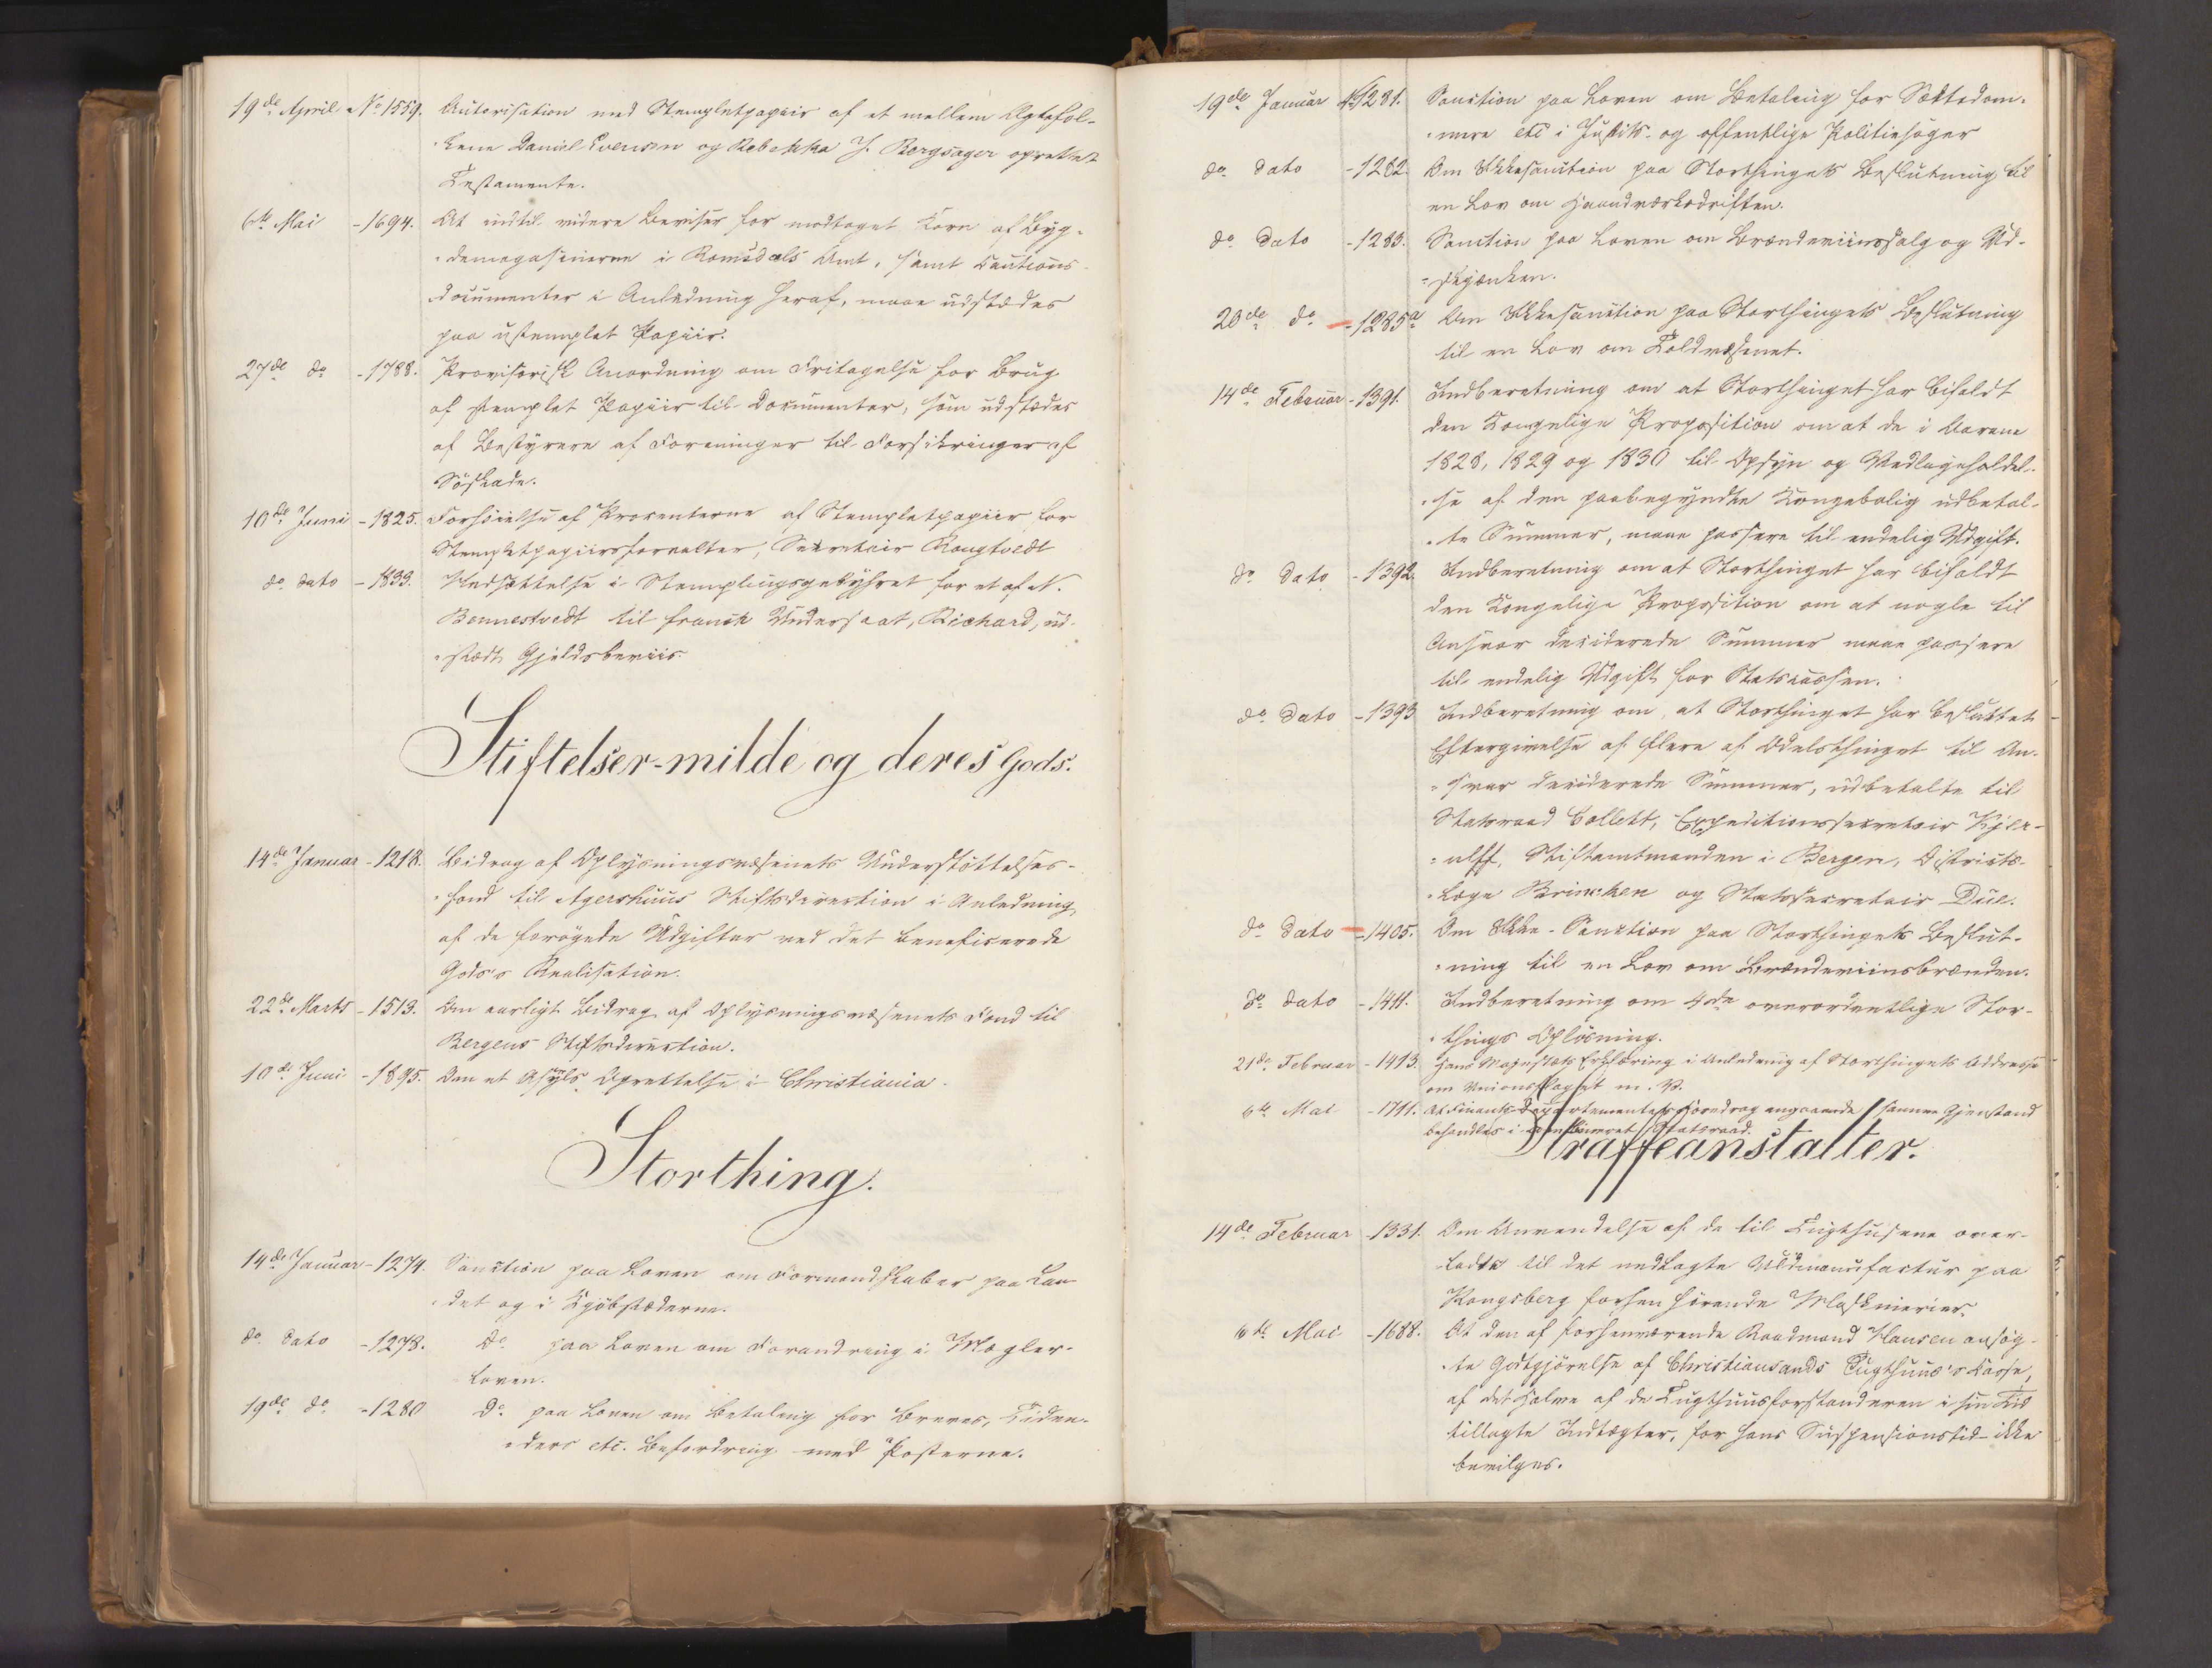 19de April No 1559. Autorisation med Stempletpapiir af et mellem Ægtefol-
kene Daniel Evensen og Rebekka J. Bergsager oprettet
Testamente.
6te Mai - 1694. At indtil videre Beviser for modtaget Korn af Byg-
demagasinerne i Romsdals Amt, samt Cautions-
documenter i Anledning heraf, maae udstædes
paa ustemplet Papiir.
27de do - 1788. Provisorisk Anordning om Fritagelse for Brug
af stemplet Papiir til Documenter, som udstædes
af Bestyrere af Foreninger til Forsikringer af
Söskade.
10de Juni - 1825. Forhöielse af Procenterne af Stempletpapiir for
Stempletpapiirsforvalter, Secretair Rougtvedt
do dato - 1833. Nedsættelse i Stemplingsgebyhret for et af N.
Bennestvedt til fransk Undersaat, Richard, ud-
stædt Gjeldsbeviis.
Stiftelser-milde og deres Gods.
14de Januar - 1218. Bidrag af Oplysningsvæsenets Understöttelses-
fond til Agershuus Stiftsdirection i Anledning
af de forögede Udgifter ved det beneficerede
Gods's Realisation.
22de Marts - 1513. Om aarligt Bidrag af Oplysningsvæsenets Fond til
Bergens Stiftsdirection.
10de Juni - 1895. Om et Asyls Oprettelse i Christiania.
Storthing.
14de Januar - 1274. Sanction paa Loven om Formandskaber paa Lan-
det og i Kjöbstæderne.
do dato - 1278. do paa Loven om Forandring i Mægler-
loven.
19de do - 1280 do paa Loven om Betaling for Breves, Tiden-
ders etc. Befordring med Posterne.
19de Januar No 1281. Sanction paa Loven om Betaling for Sættedom-
mere etc i Justits- og offentlige Politiesager
do dato - 1282. Om Ikkesanction paa Storthingets Beslutning til
en Lov om Haandværksdriften.
do dato - 1283. Sanction paa Loven om Brændeviinssalg og Ud-
skjænken.
20de do - 1285a Om Ikkesanction paa Storthingets Beslutning
til en Lov om Toldvæsenet.
14de Februar - 1391. Indberetning om at Storthinget har bifaldt
den Kongelige Proposition om at de i Aarene
1828, 1829 og 1830 til Opsyn og Vedlageholdel-
se af den paabegyndte Kongebolig udbetal-
te Summer, maae passere til endelig Udgift.
do dato - 1392. Indberetning om at Storthinget har bifaldt
den Kongelige Proposition om at nogle til
Ansvar deciderede Summer maae passere
til endelig Udgift for Statscassen.
do dato - 1393 Indberetning om, at Storthinget har besluttet
Eftergivelse af flere af Odelsthinget til An-
svar deciderede Summer, udbetalte til
Statsraad Collett, Expeditionssecretair Kjer-
ulff, Stiftamtmanden i Bergen, Districts-
læge Brinchen og Statssecretair Due.
do dato - 1405. Om Ikke-Sanction paa Storthingets Beslut-
ning til en Lov om Brændeviinsbrænden.
do dato - 1411. Indberetning om 4de overordentlige Stor-
things Oplösning.
21de Februar - 1413. Hans Majestæts Erklæring i Anledning af Storthingets Addresse
om Unionsflaget m. V.
6te Mai - 1711. At Finants-Departementets Foredrag angaaende samme Gjenstand
behandles i combineret Statsraad.
Straffeanstalter.
14de Februar - 1331. Om Anvendelse af de til Tugthusene over-
ladte til det nedlagte Uldmanufactur paa
Kongsberg forhen hörende Maskinerier.
6te Mai - 1688. At den af forhenværende Raadmand Hansen ansög-
te Godtgjörelse af Christiansands Tugthuus's Casse,
af det Halve af de Tugthuusforstanderen i sin Tid
tillagte Indtægter, for hans Suspensionstid ikke
bevilges.